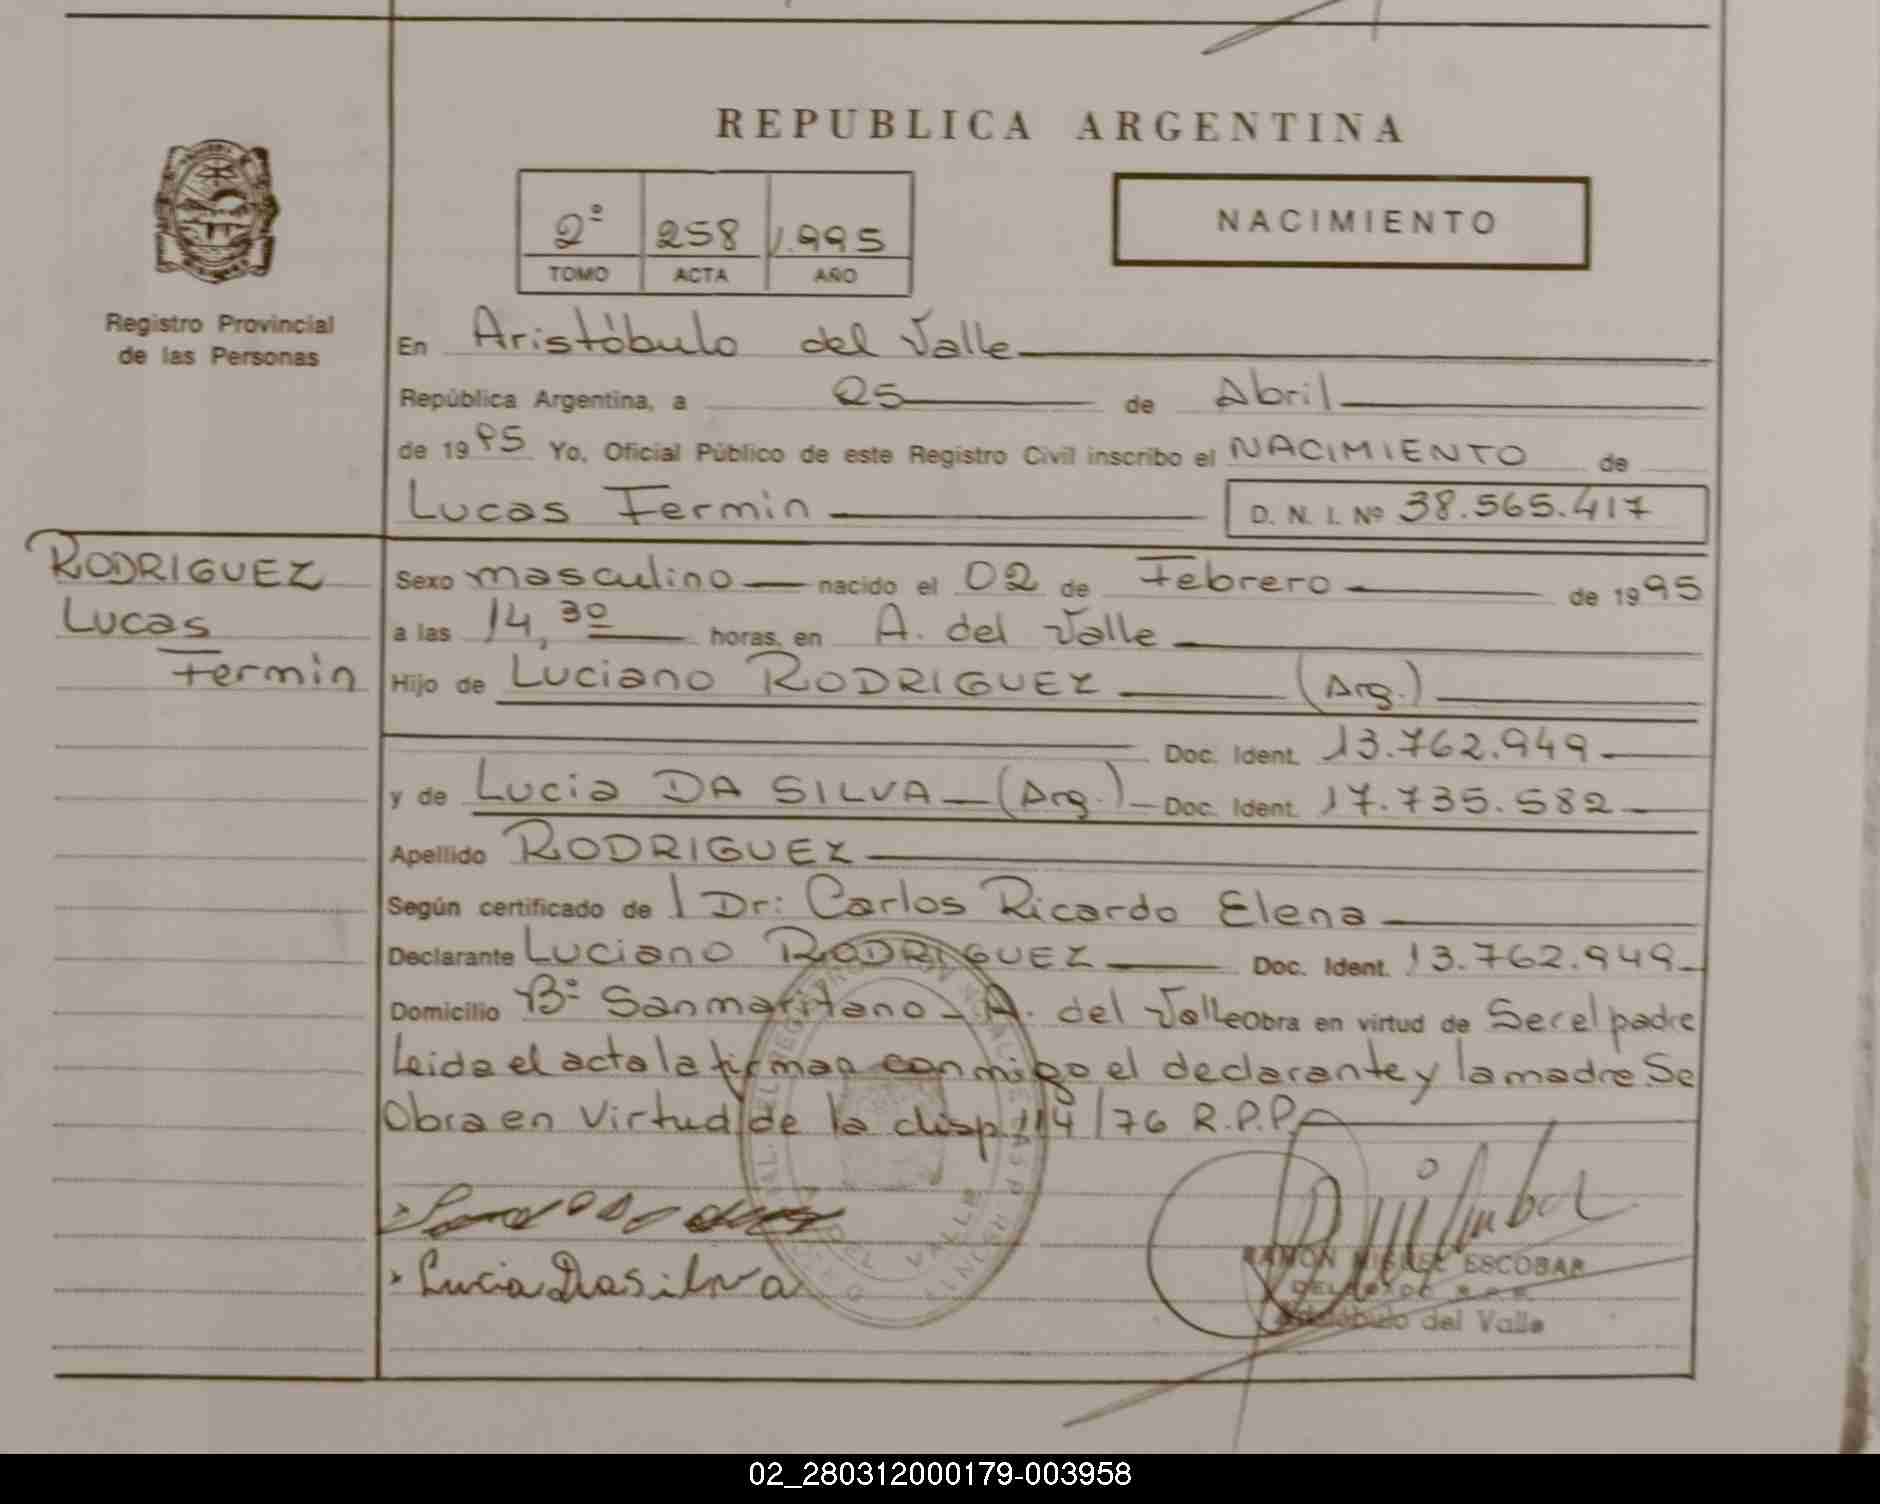 REPUBLICA ARGENTINA
2º 258 1.995
TOMO ACTA AÑO
NACIMIENTO
Registro Provincial
de las Personas
En Aristóbulo del Valle
República Argentina, a 25 de Abril
de 1995 Yo, Oficial Público de este Registro Civil inscribo el NACIMIENTO de
Lucas Fermin D. N. I. Nº 38.565.417
RODRIGUEZ
Lucas
Fermin
Sexo masculino nacido el 02 de Febrero de 1995
a las 14,30 horas, en A. del Valle
Hijo de Luciano RODRIGUEZ (Arg.)
Doc. Ident. 13.762.949
y de Lucia DA SILVA (Arg.) Doc. Ident. 17.735.582
Apellido RODRIGUEZ
Según certificado de l Dr: Carlos Ricardo Elena
Declarante Luciano RODRIGUEZ Doc. Ident. 13.762.949
Domicilio Bº Sanmaritano - A. del Valle Obra en virtud de Ser el padre
Leida el acta la firman conmigo el declarante y la madre Se
Obra en Virtud de la disp 114/76 R.P.P.
Lucia Dasilva
RAMON MIGUEL ESCOBAR
del Valle
DEL VALLE
02_280312000179-003958